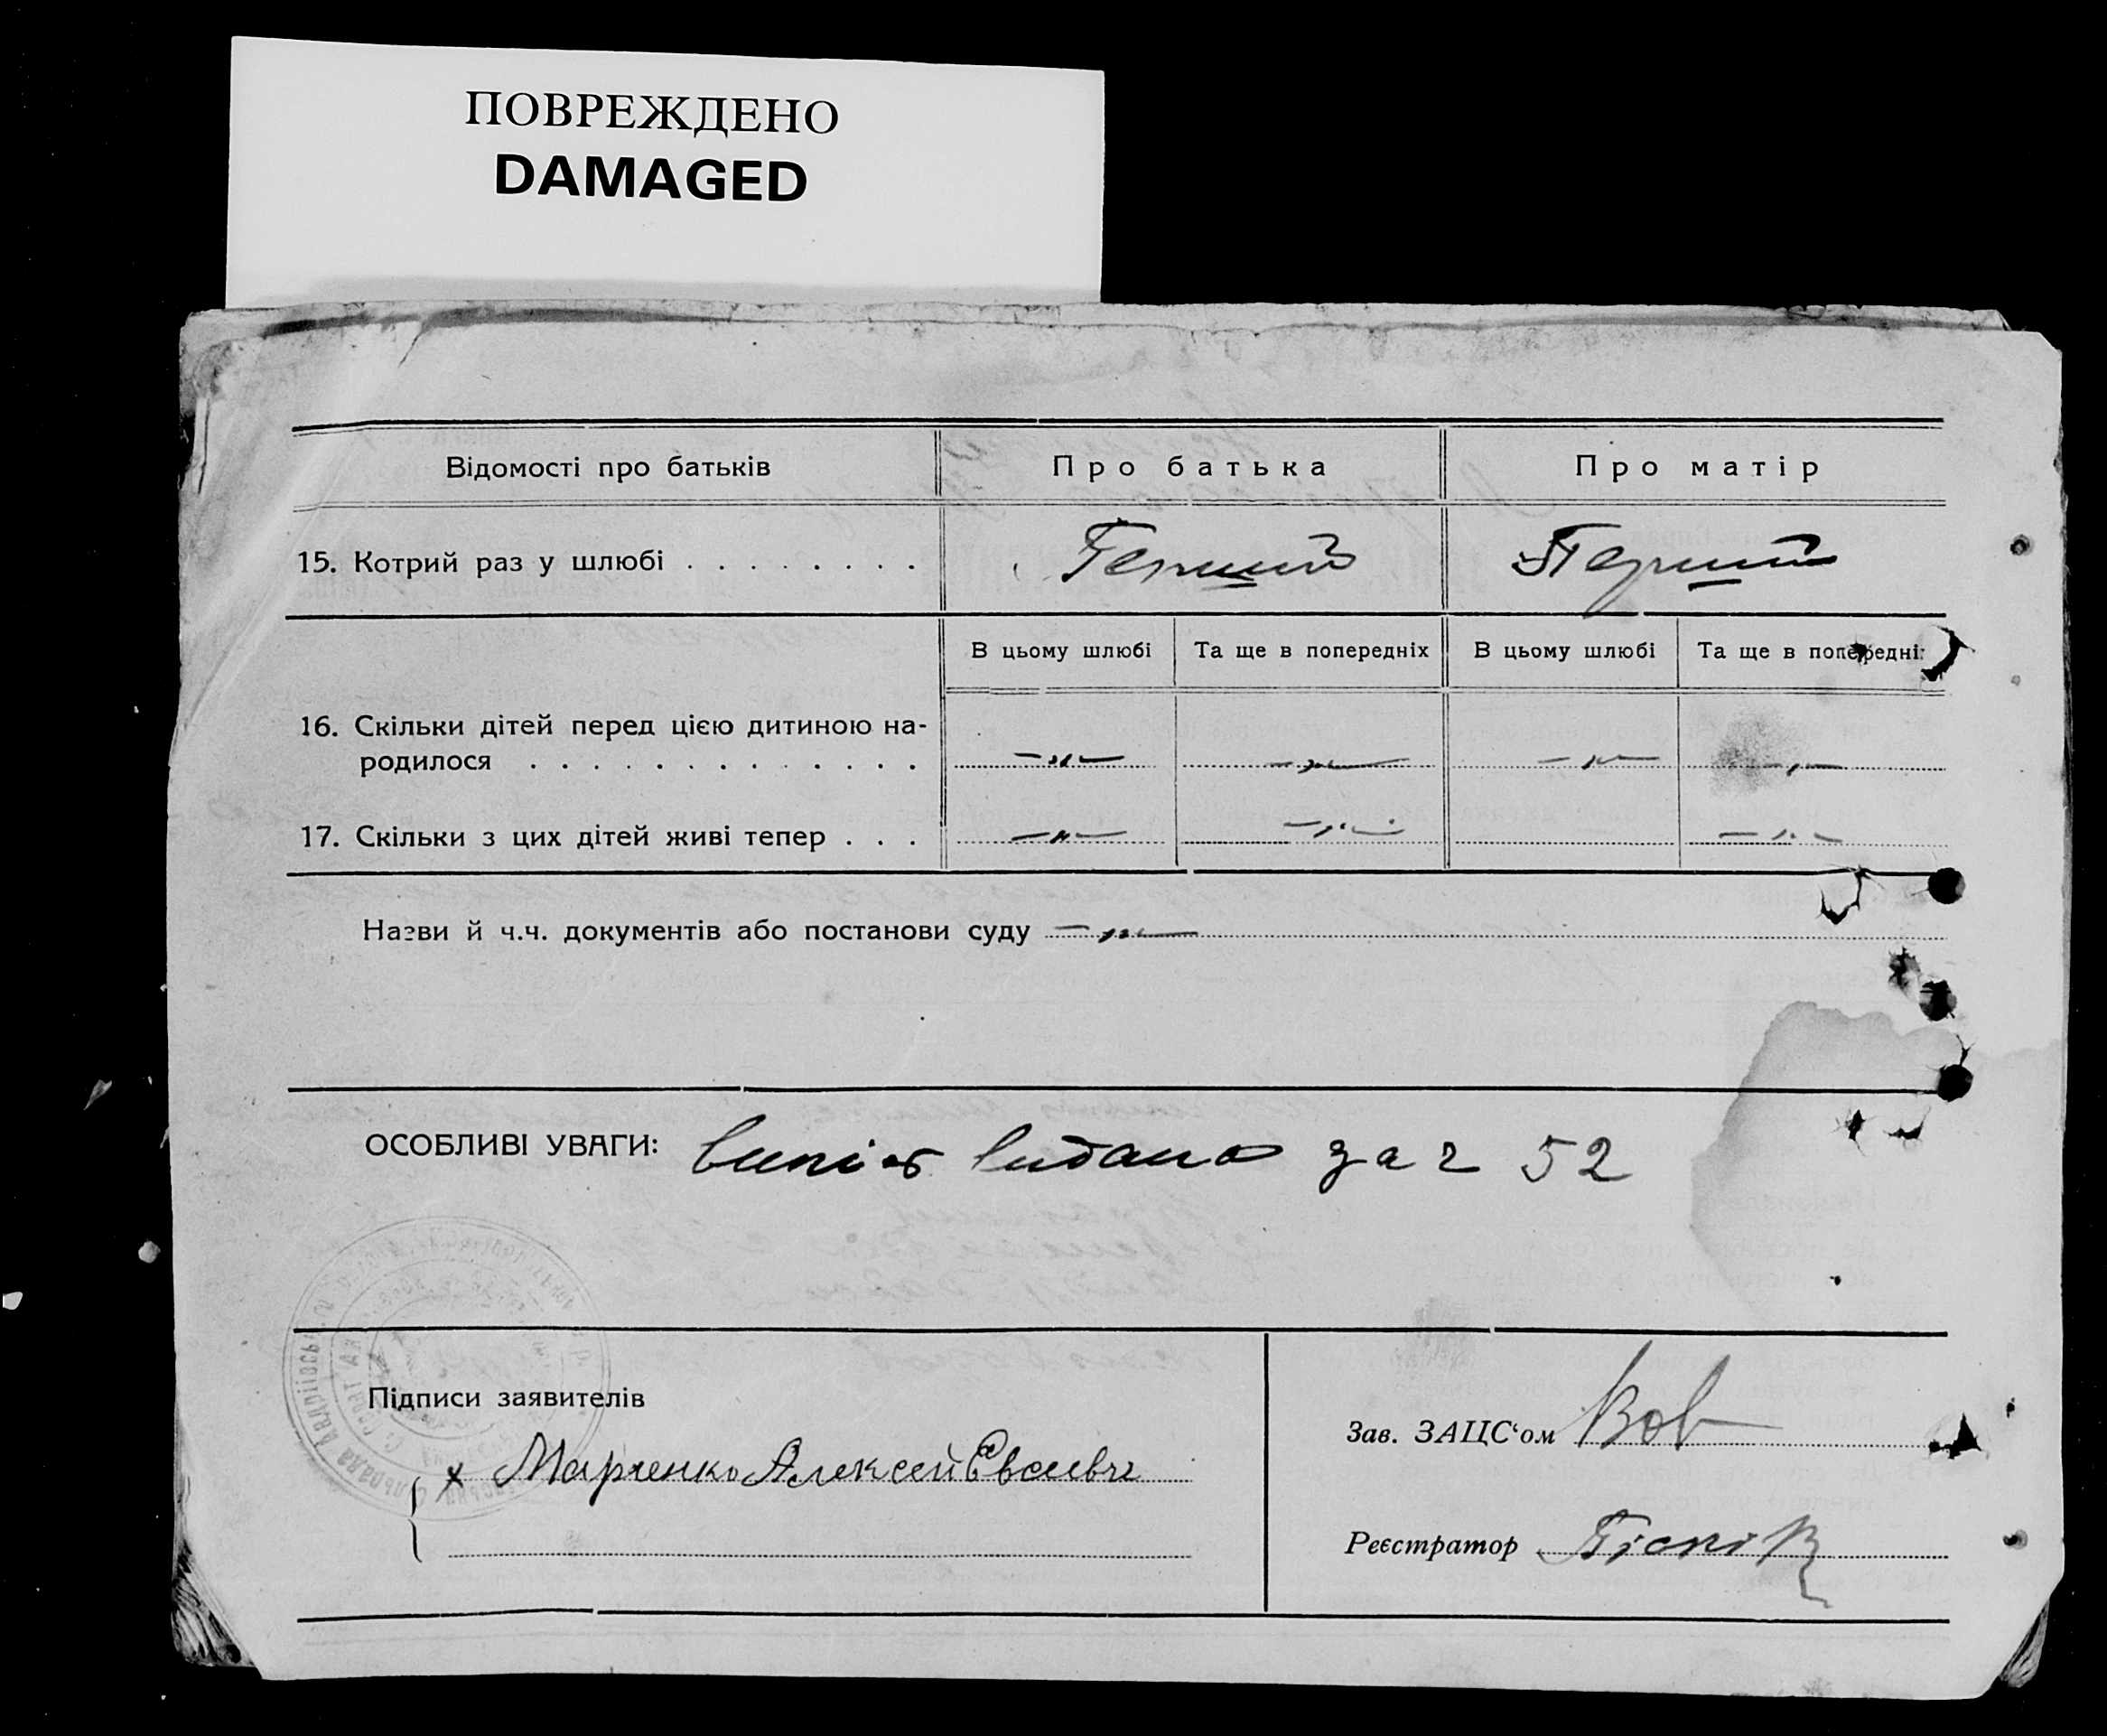 ПОВРЕЖДЕНО
DAMAGED
Відомості про батьків
Про батька
Про матір
15. Котрий раз у шлюбі . . . . . . . .
Перший
Перший
В цьому шлюбі
Та ще в попередніх
В цьому шлюбі
Та ще в попередні
16. Скільки дітей перед цією дитиною на-
родилося . . . . . . . . . . . . .
—„—
—„—
—„—
—„—
17. Скільки з цих дітей живі тепер . . .
—„—
—„—
—„—
Назви й ч.ч. документів або постанови суду —„—
ОСОБЛИВІ УВАГИ: видано за ч 52
Підписи заявителів
х Марченко Алексей
Зав. ЗАЦС‘ом
Реєстратор